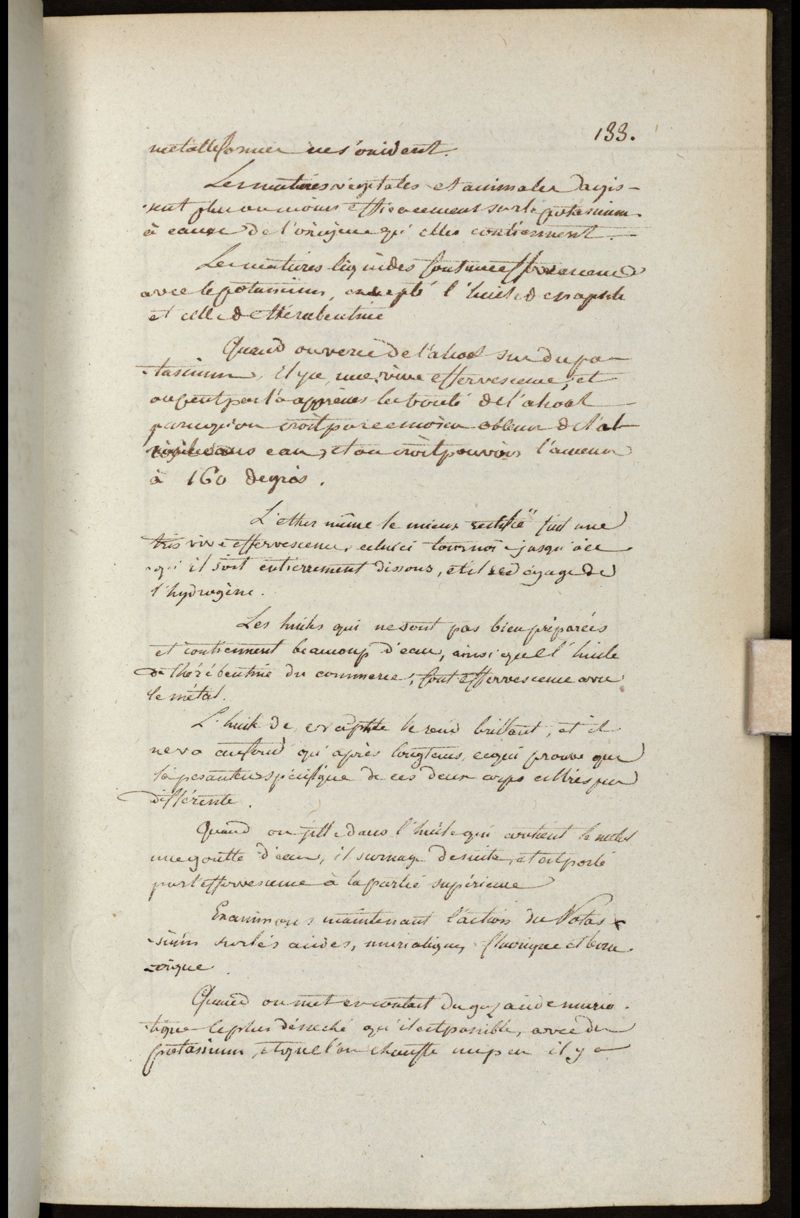 133.
métallisarmes ne s'oxident.
Les matières végétales et animales agis-
sent plus ou moins efficacement sur le potassium
à cause de l'oxigène qu'elles contiennent.
Les matières liquides font une effervescence
avec le potassium, excepté l'huile de naphte
et celle de thérébentine
Quand on verse de l'alcool sur du po-
tassium, il y a une vive effervescence, et
on peut par là apprécier la bonté de l'alcool
parcequ'on croit pas encore avoir obtenu de l'al-
sans eau, et on croit pouvoir l'amener
à 160 degrés.
L'éther même le mieux rectifié fait une
très vive effervescence, celui ci tournoie jusqu'à ce
qu'il soit entièrement dissous, et il se dégage de
l'hydrogène.
Les huiles qui ne sont pas bien préparées
et contiennent beaucoup d'eau, ainsi que l'huile
de thérébentine du commerce, font effervescence avec
le métal.
L'huile de naphte le rend brillant, et il
ne va au fond qu'après longtems, ce qui prouve que
la pesanteur spécifique de ces deux corps est très peu
différente.
Quand on jette dans l'huile qui contient le métal
une goutte d'eau, il surnage de suite, et est porté
par l'effervescence à la partie supérieure
Examinons maintenant l'action du Potas-
sium sur les acides, muriatique, fluorique et bora-
cique.
Quand on met en contact du gaz acide muria-
tique le plus désséché qu'il est possible, avec du
potassium, et que l'on chauffe un peu il y a